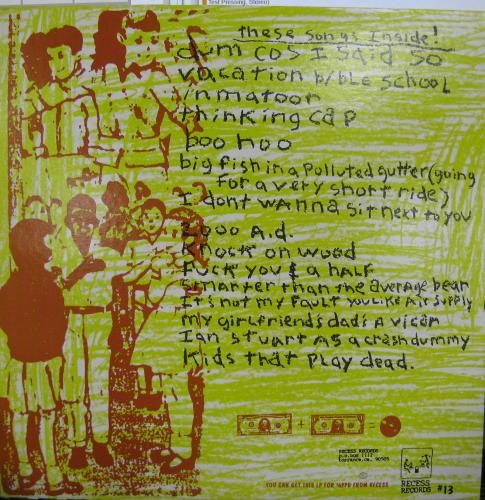 Test Pressing, Stereo)
these songs Inside!
dum cos I said so
vacation bible school
in matoon
thinking cap
boo hoo
big fish in a polluted gutter (going
for a very short ride)
I dont wanna sit next to you
2000 A.d.
Knock on wood
Fuck you & a half
smarter than the average bear
It's not my fault you like Air Supply
my girlfriend's dad's a vicar
Ian Stuart as a crash dummy
Kids that play dead.
+ =
RECESS RECORDS
P.O. BOX 1112
torrance, ca. 90505
YOU CAN GET THIS LP FOR PPD FROM RECESS
RECESS
RECORDS #13